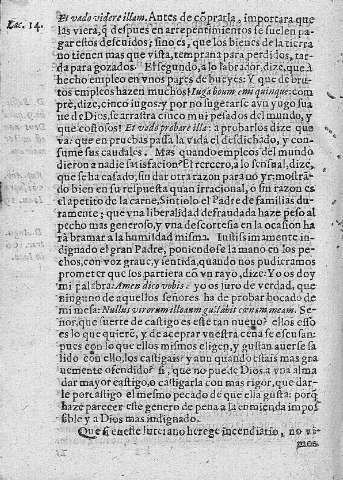 Luc. 14.
Et vado videre illam. Antes de cōprarla, importara que
las viera, q̃ despues en arrepentimientos se suelen pa
gar estos descuidos; sino es, que los bienes de la tierra
no tienen mas que vista, temprana para perdidos, tar
da para gozados. El segundo, a lo labrador, dize, que à
hecho empleo en vnos pares de bueyes; Y que de bru-
tos empleos hazen muchos! Iuga boum emi quinque: com
prè, dize, cinco iugos: y por no sugetarse a vn yugo sua
ue de Dios, se arrastra cinco mui pesados del mundo, y
que costosos! Et vado probare illa: a probarlos dize que
va: que en pruebas passa la vida el desdichado, y con-
sume sus caudales. Mas quando empleos del mundo
dieron a nadie satisfacion? El tercero, a lo sensual, dize,
que se ha casado, sin dar otra razon para no yr: mostrā-
do bien en su respuesta quan irracional, o sin razon es
el apetito de la carne, Sintiolo el Padre de familias du-
ramente; que vna liberalidad defraudada haze peso al
pecho mas generoso, y vna descortesia en la ocasion ha
rà bramar a la humildad misma. Iustissimamente in-
dignado el gran Padre, poniendose la mano en los pe-
chos, con voz graue, y sentida, quando nos pudieramos
prometer que los partiera cō vn rayo, dize: Yo os doy
mi palabra: Amen dico vobis: yo os juro de verdad, que
ninguno de aquellos señores ha de probar bocado de
mi mesa: Nullus virorum illorum gustabit cœnam meam. Se-
ñor, que suerte de castigo es este tan nueuo? ellos esso
es lo que quierē, y de aceptar vuestra cena se escusan:
pues con lo que ellos mismos eligen, y gustan auerse sa
lido con ello, los castigais? y aun quando estais mas gra
uemente ofendido? si, que no puede Dios a vna alma
dar mayor castigo, o castigarla con mas rigor, que dar-
le por castigo el mesmo pecado de que ella gusta: porq̃
hazē parecer este genero de pena a la enmienda impos
sible y a Dios mas indignado.
Que si en este luterano herege incendiario, no vi-
mos